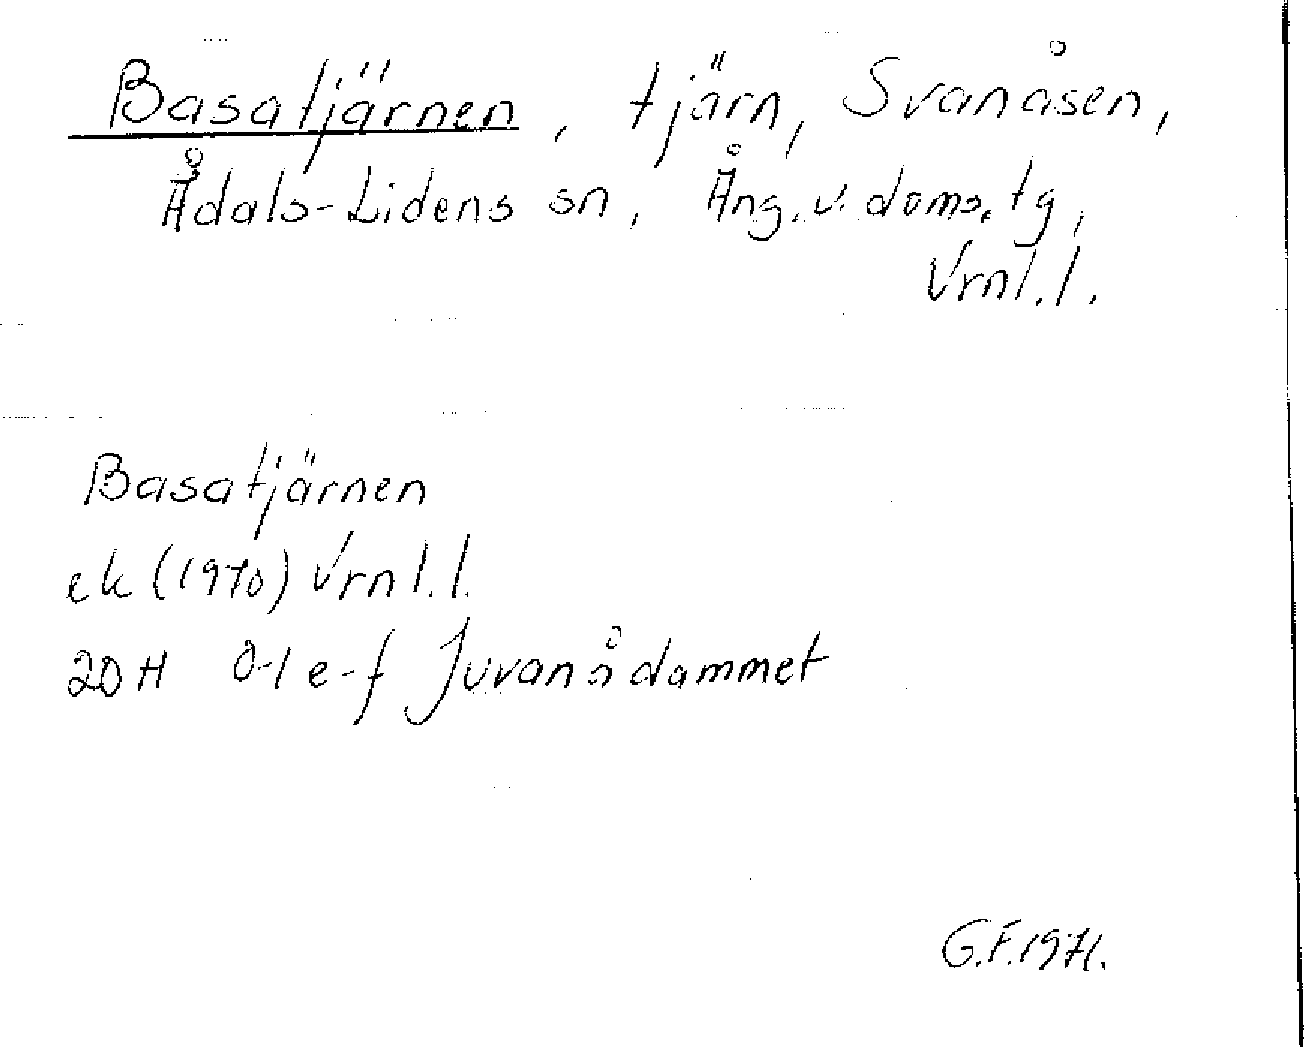 Basatjärnen, tjärn, Svanåsen,
Ådals-Lidens sn, Ång.v.doms.tg,
Vrnl.l.
Basatjärnen
ek (1970) Vrnl.l.
20H 0-1 e-f Juvanådammet
G.F.1971.